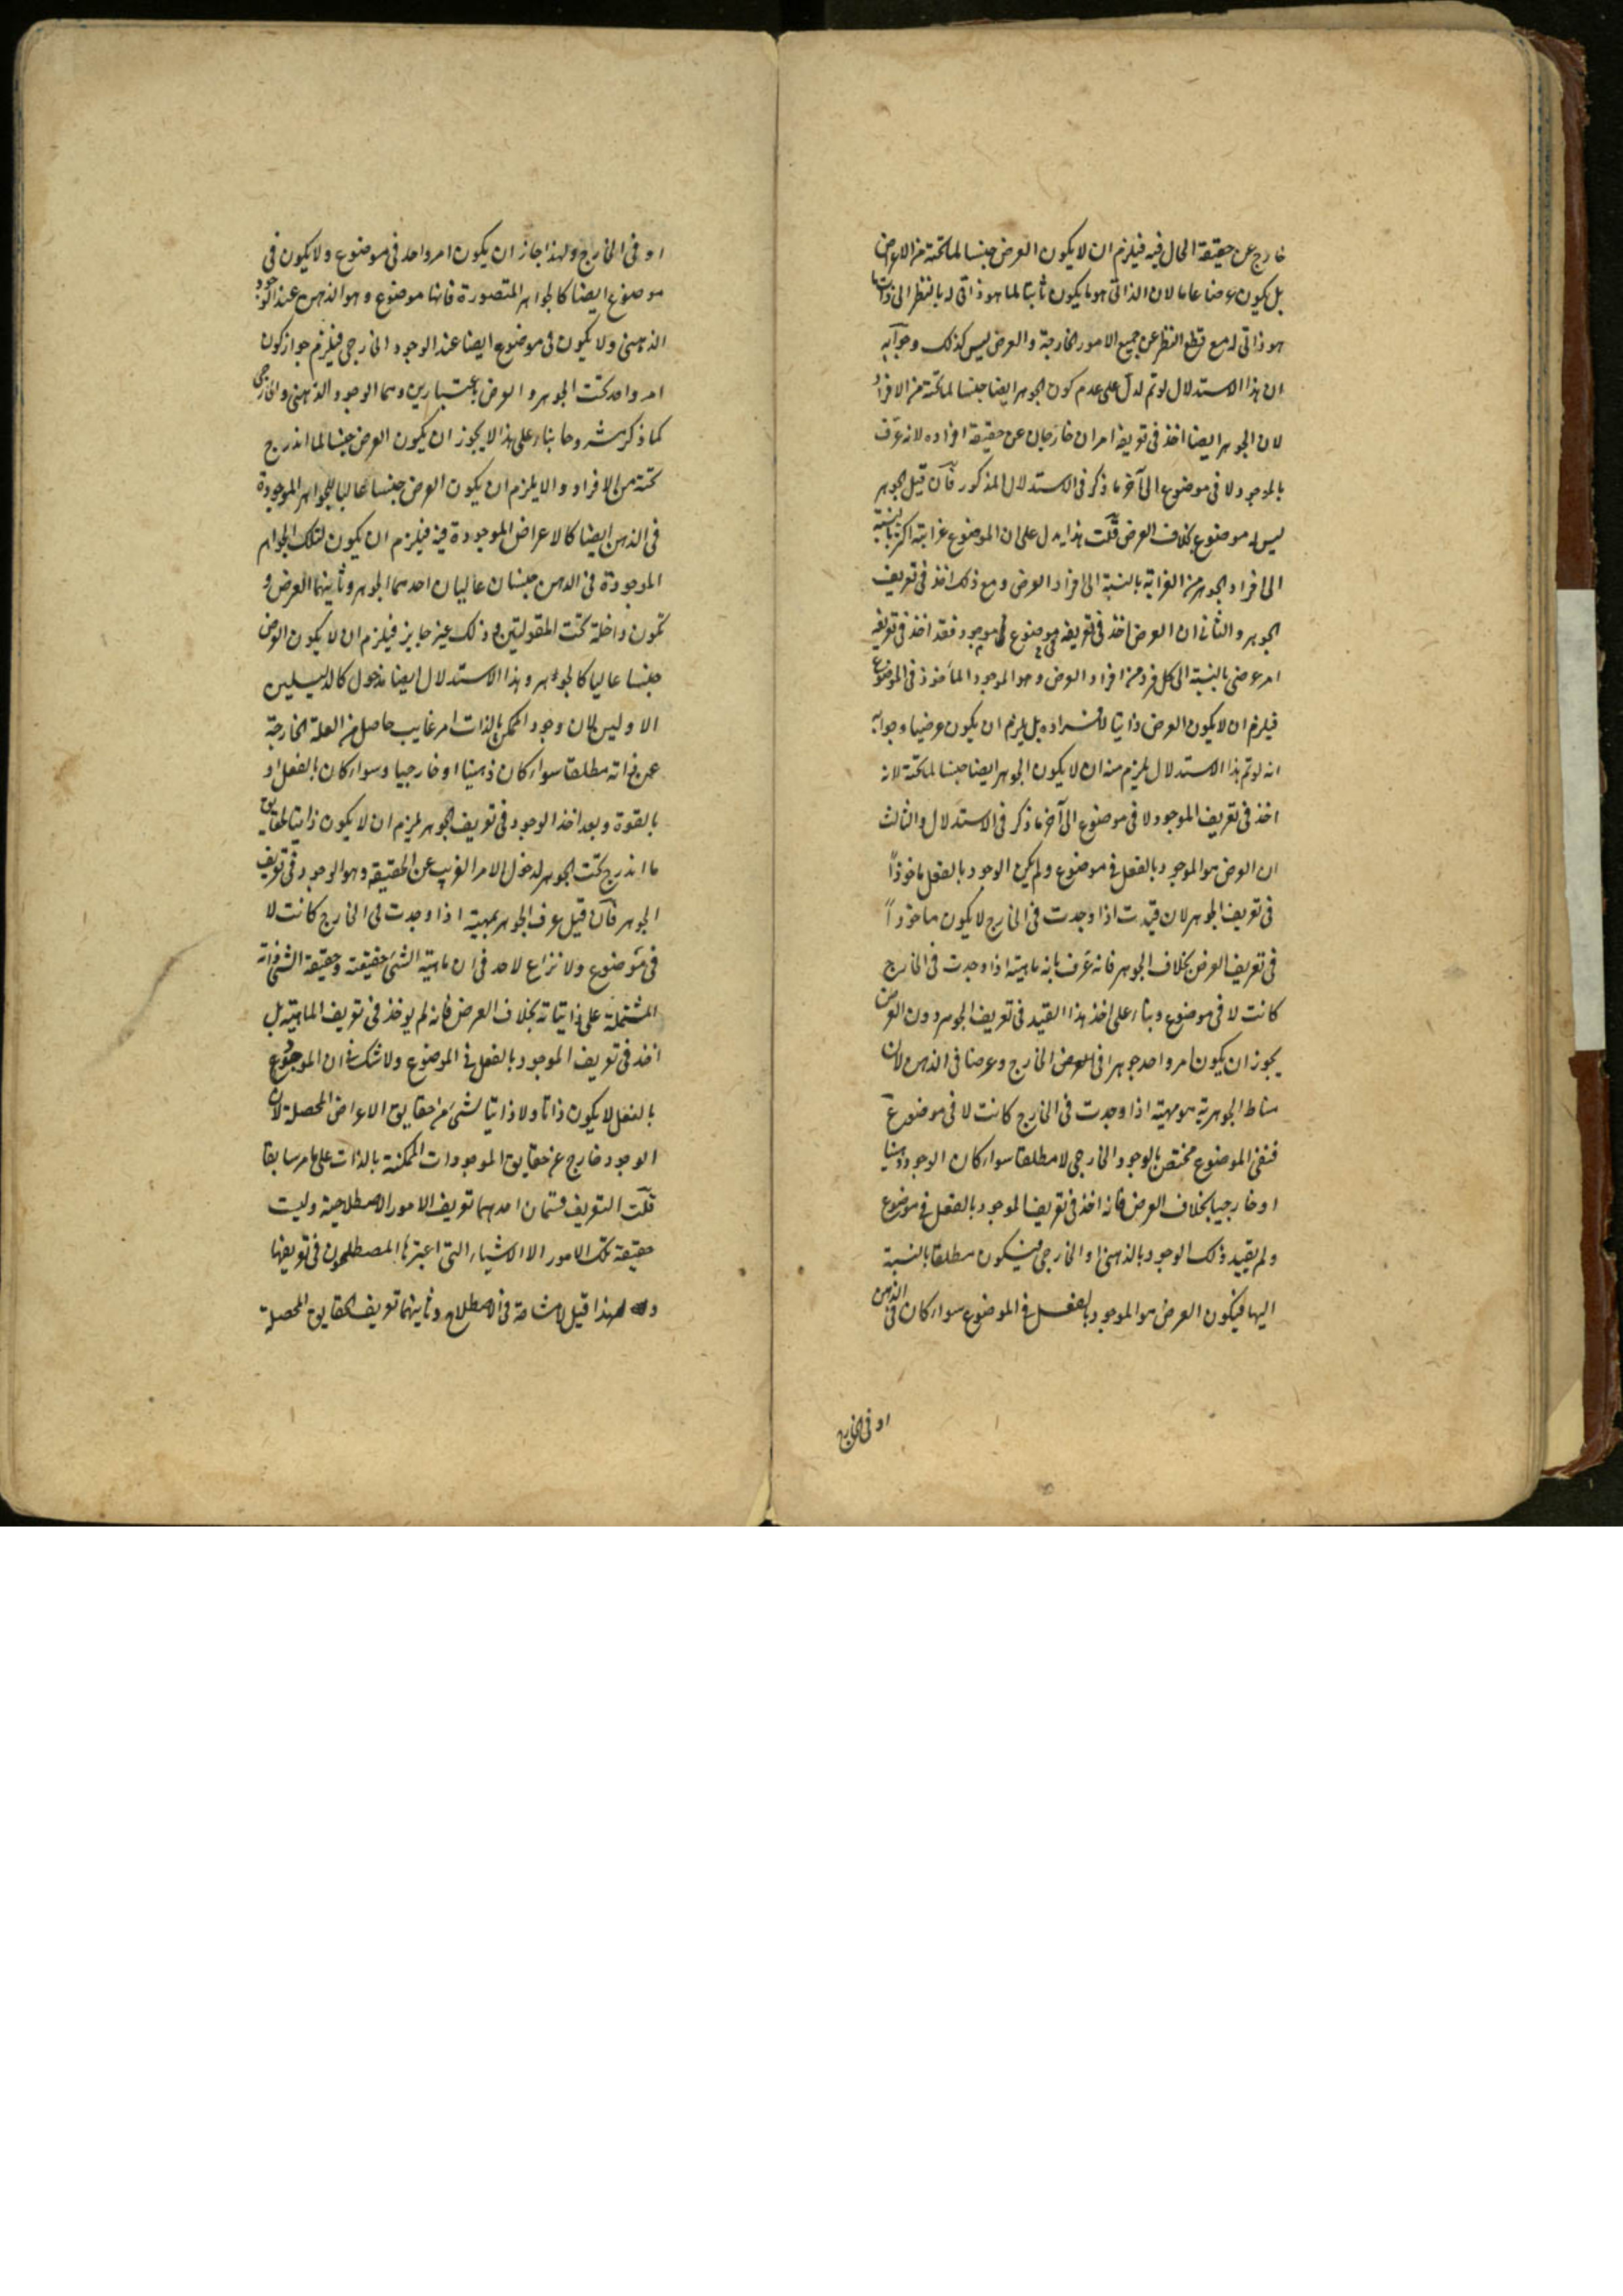 خارج عن حقيقة الحال فيه فيلزم ان لا يكون العرض جنسا لما تحته من الاعراض
بل يكون عرضا عاما لان الذاتى هو ما يكون ثابتا لما هو ذاتى له بالنظر الى ذات ما
هو ذاتى له مع قطع النظر عن جميع الامور الخارجة والعرض ليس كذلك وجوابه
ان هذا الاستدلال لو تم لدل على عدم كون الجوهر ايضا جنسا لما تحته من الافراد
لان الجوهر ايضا اخذ فى تعريفه امران خارجان عن حقيقة افراده لانه عرف
بالموجود لا فى موضوع الى آخر ما ذكر فى الاستدلال المذكور فان قيل الجوهر
ليس له موضوع بخلاف العرض قلت هذا يدل على ان الموضوع غرابته اكثر بالنسبة
الى افراد الجوهر من الغرابة بالنسبة الى افراد العرض ومع ذلك اخذ فى تعريف
الجوهر والثانى ان العرض اخذ فى تعريفه موجود فقد اخذ فى تعريفه
امر عرضى بالنسبة الى كل فرد من افراد العرض وهو الموجود المأخوذ فى الموضوع
فيلزم ان لا يكون العرض ذاتيا لافراده بل يلزم ان يكون عرضيا وجوابه
انه لو تم هذا الاستدلال يلزم منه ان لا يكون الجوهر ايضا جنسا لما تحته لانه
اخذ فى تعريف الموجود لا فى موضوع الى آخر ما ذكر فى الاستدلال والثالث
ان العرض هو الموجود بالفعل فى موضوع ولم يكن الوجود بالفعل ماخوذاً
فى تعريف الجوهر لان قيد ت اذا وجدت فى الخارج لا يكون ماخوذاً
فى تعريف العرض بخلاف الجوهر فانه عرف بانه ماهية اذا وجدت فى الخارج
كانت لا فى موضوع وبناء على اخذ هذا القيد فى تعريف الجوهر دون العرض
يجوز ان يكون امر واحد جوهرا فى الخارج وعرضا فى الذهن لان
مناط الجوهرية هو مهية اذا وجدت فى الخارج كانت لا فى موضوع
فنفى الموضوع مختص بالوجود الخارجى لا مطلقا سواء كان الوجود ذهنيا
او خارجيا بخلاف العرض فانه اخذ فى تعريف الموجود بالفعل فى موضوع
ولم يقيد ذلك الوجود بالذهنى او الخارجى فيكون مطلقا بالنسبة
اليها فيكون العرض هو الموجود بالفعل فى الموضوع سواء كان فى الذهن
او فى الخارج
او فى الخارج ولهذا جاز ان يكون امر واحد فى موضوع ولا يكون فى
موضوع ايضا كالجواهر المتصورة فانها موضوع وهو الذهن عند الوجود
الذهنى ولا يكون فى موضوع ايضا عند الوجود الخارجى فيلزم جواز كون
امر واحد تحت الجوهر والعرض باعتبارين وهما الوجود الذهنى والخارجى
كما ذكر مشروحا بناء على هذا لا يجوز ان يكون العرض جنسا لما اندرج
تحته من الافراد والا يلزم ان يكون العرض جنسا عاليا للجواهر الموجودة
فى الذهن ايضا كالاعراض الموجودة فيه فيلزم ان يكون لتلك الجواهر
الموجودة فى الذهن جنسان عاليان احدهما الجوهر وثانيهما العرض و
تكون داخلة تحت المقولتين وذلك غير جايز فيلزم ان لا يكون العرض
جنسا عاليا كالجوهر وهذا الاستدلال ايضا مدخول كالدليلين
الاوليين لان وجود الممكن بالذات امر غايب حاصل من العلة الخارجة
عن ذاته مطلقا سواء كان ذهنيا او خارجيا وسواء كان بالفعل او
بالقوة وبعد اخذ الوجود فى تعريف الجوهر يلزم ان لا يكون ذاتيا لحقايق
ما اندرج تحت الجوهر لدخول الامر الغريب عن الحقيقة وهو الوجود فى تعريف
الجوهر فان قيل عرف الجوهر بمهية اذا وجدت فى الخارج كانت لا
فى موضوع ولا نزاع لاحد فى ان ماهية الشئ حقيقته وحقيقة الشئ ذاته
المشتملة على ذاتياته بخلاف العرض فانه لم يوخذ فى تعريف الماهية بل
اخذ فى تعريف الموجود بالفعل فى الموضوع ولا شك فى ان الموجود
بالفعل لا يكون ذاتا ولا ذاتيا لشئ من حقايق الاعراض المحصلة لان
الوجود خارج عن حقايق الموجودات الممكنة بالذات على ما مر سابقا
قلت التعريف قسمان احدهما تعريف الامور الاصطلاحية وليست
حقيقة تلك الامور الا الاشياء التى اعتبرها المصطلحون فى تعريفها
ولهذا قيل لا مشاحة فى الاصطلاح وثانيهما تعريف الحقايق المحصلة